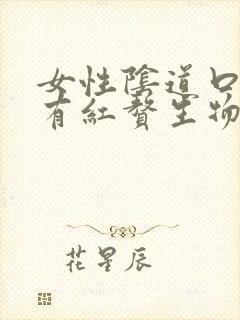 女性陰道口
有紅贅生物
花星辰